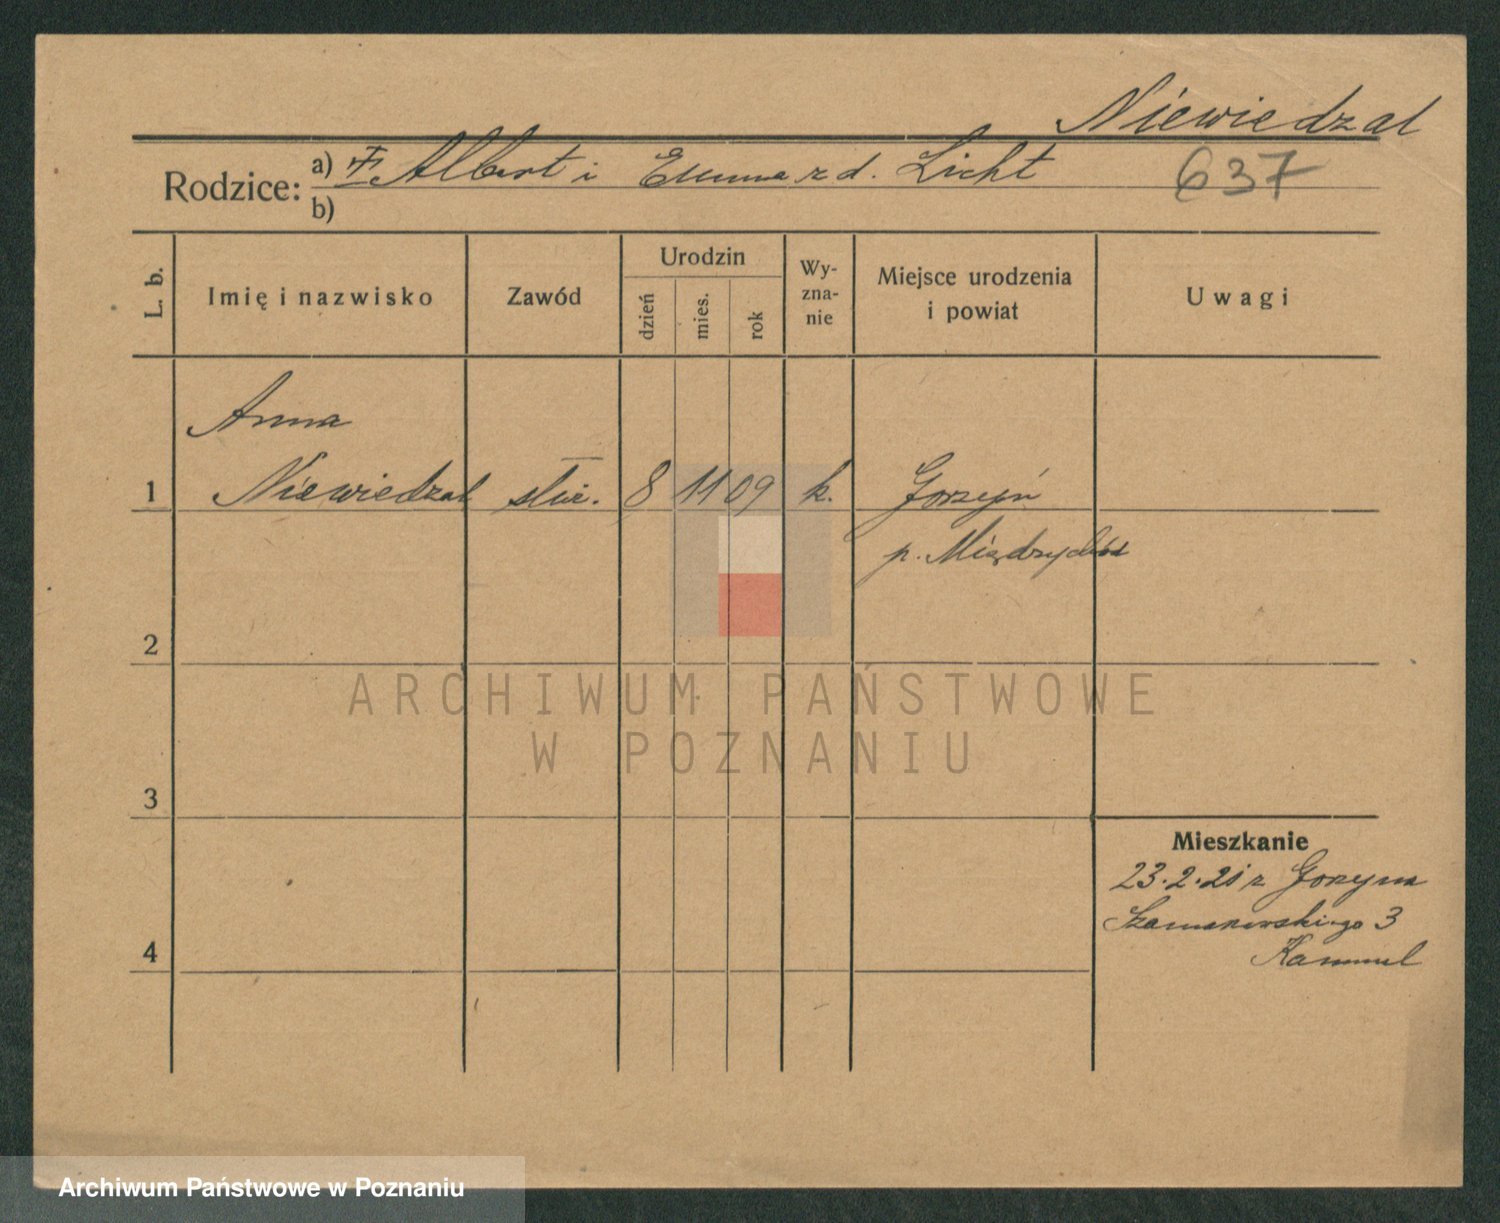 Niewiedzał
Rodzice: a) Albert i Emma z d. Licht
637
b)
L. b.
Imię i nazwisko
Zawód
Urodzin
dzień
mies.
rok
Wy-
zna-
nie
Miejsce urodzenia
i powiat
Uwagi
Anna
1 Niewiedzał służ. 8 11 09 k. Gorzyń
p. Międzychód
2
ARCHIWUM PAŃSTWOWE
W POZNANIU
3
Mieszkanie
23.2.21 z Gorzynia
3
4
Archiwum Państwowe w Poznaniu